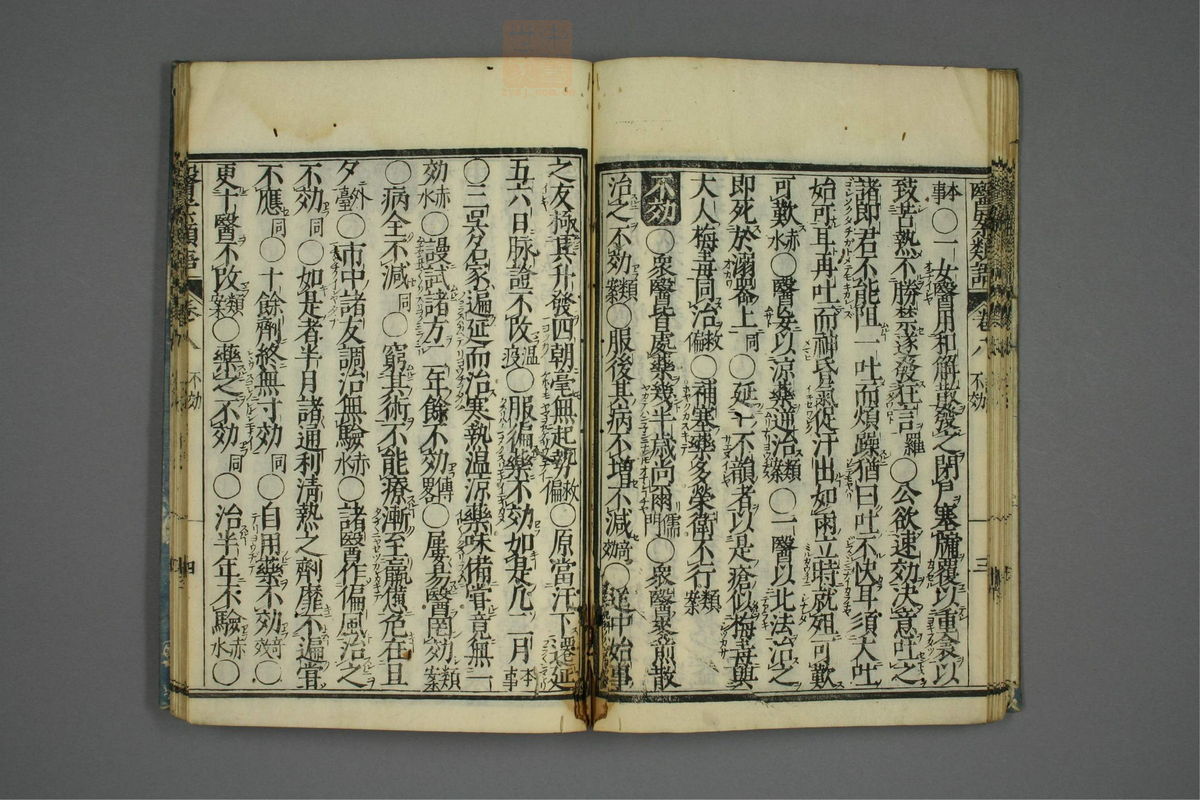 醫案類語 卷八 不効 三
本事〇一女醫用和解散發之閉戶塞牖覆以重衾以
致苦熱不勝禁遂發狂言羅〇公欲速効決意吐之
諸即君不能阻一吐而煩躁猶曰吐不快耳須大吐
始可耳再吐而神昏氣促汗出如雨立時就殂可歎
可歎赤水〇醫妄以涼藥逆治類案〇一醫以北法治之
即死於溺器上同〇延一不韻者以是瘡似梅毒與
大人梅毒同治救偏〇補塞藥多榮衛不行類案
不効〇衆醫皆處藥幾半歲尚爾儒門〇衆醫聚煎散
治之不効類案〇服後其病不增不減奇効〇延中始事
之友極其升發四朝毫無起勢救偏〇原當汗下遷延
五六日脉證不改温疫〇服偏藥不効如是凡二月本事
〇三吳名家遍延而治寒熱温涼藥味備嘗竟無一
効赤水〇謾試諸方一年餘不効博畧〇屢易醫罔効類案
〇病全不減同〇窮其術不能療漸至羸憊危在旦
夕外臺〇市中諸友調治無驗赤水〇諸醫作偏風治之
不効同〇如是者半月諸通利清熱之劑靡不遍嘗
不應同〇十餘劑終無寸効同〇自用藥不効奇効
更十醫不改類案〇藥之不効同〇治半年不驗赤水〇
醫案類語 卷八 不効 四